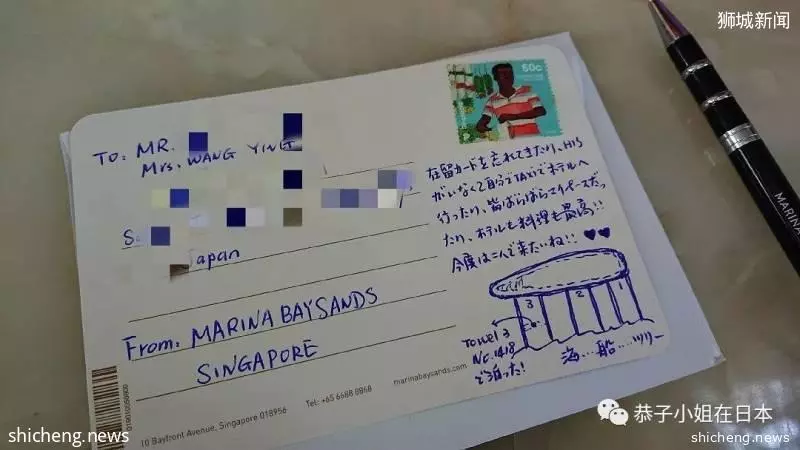 狮城新闻
60c
TO: MR.
MRS. WANG YING
Japan
From: MARINA BAY SANDS
SINGAPORE
在留カードを忘れてきたり、HIS
がいなくて自分でTAXIでホテルへ
行ったり、皆ばらばらマイペースだっ
たり、ホテルも料理も最高!!
今度は二人で来たいね!! ♥♥
3 2 1
Towel 3
No. 1418
で泊った!
海…船…ツリー
10 Bayfront Avenue, Singapore 018956 Tel: +65 6688 8868 marinabaysands.com
MARINA
恭子小姐在日本
shicheng.news
shicheng.news